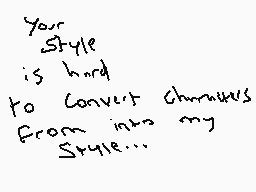 Your
style
is hard
to convert characters
From into my
style...